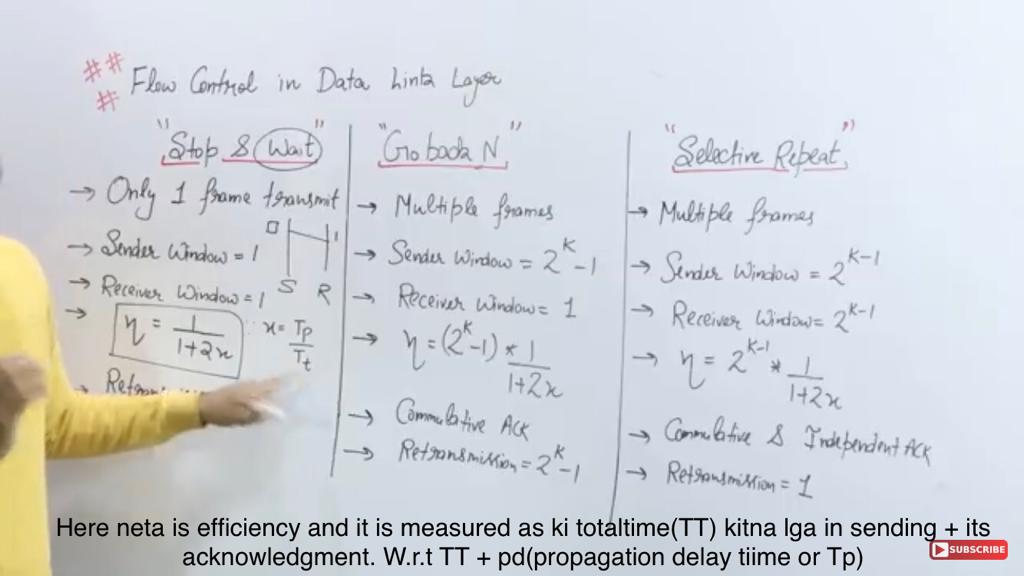 ## Flow Control in Data Link Layer
#
"Stop & Wait"
→ Only 1 frame transmit
→ Sender Window = 1
→ Receiver Window = 1
S R
→ η = 1/(1+2x) ∵ x = Tp/Tt
"Go back N"
→ Multiple frames
→ Sender Window = 2^K - 1
→ Receiver Window = 1
→ η = (2^K - 1) * 1/(1+2x)
→ Commulative ACK
→ Retransmission = 2^K - 1
"Selective Repeat"
→ Multiple frames
→ Sender Window = 2^(K-1)
→ Receiver Window = 2^(K-1)
→ η = 2^(K-1) * 1/(1+2x)
→ Commulative & Independent ACK
→ Retransmission = 1
Here neta is efficiency and it is measured as ki totaltime(TT) kitna lga in sending + its
acknowledgment. W.r.t TT + pd(propagation delay tiime or Tp)
SUBSCRIBE